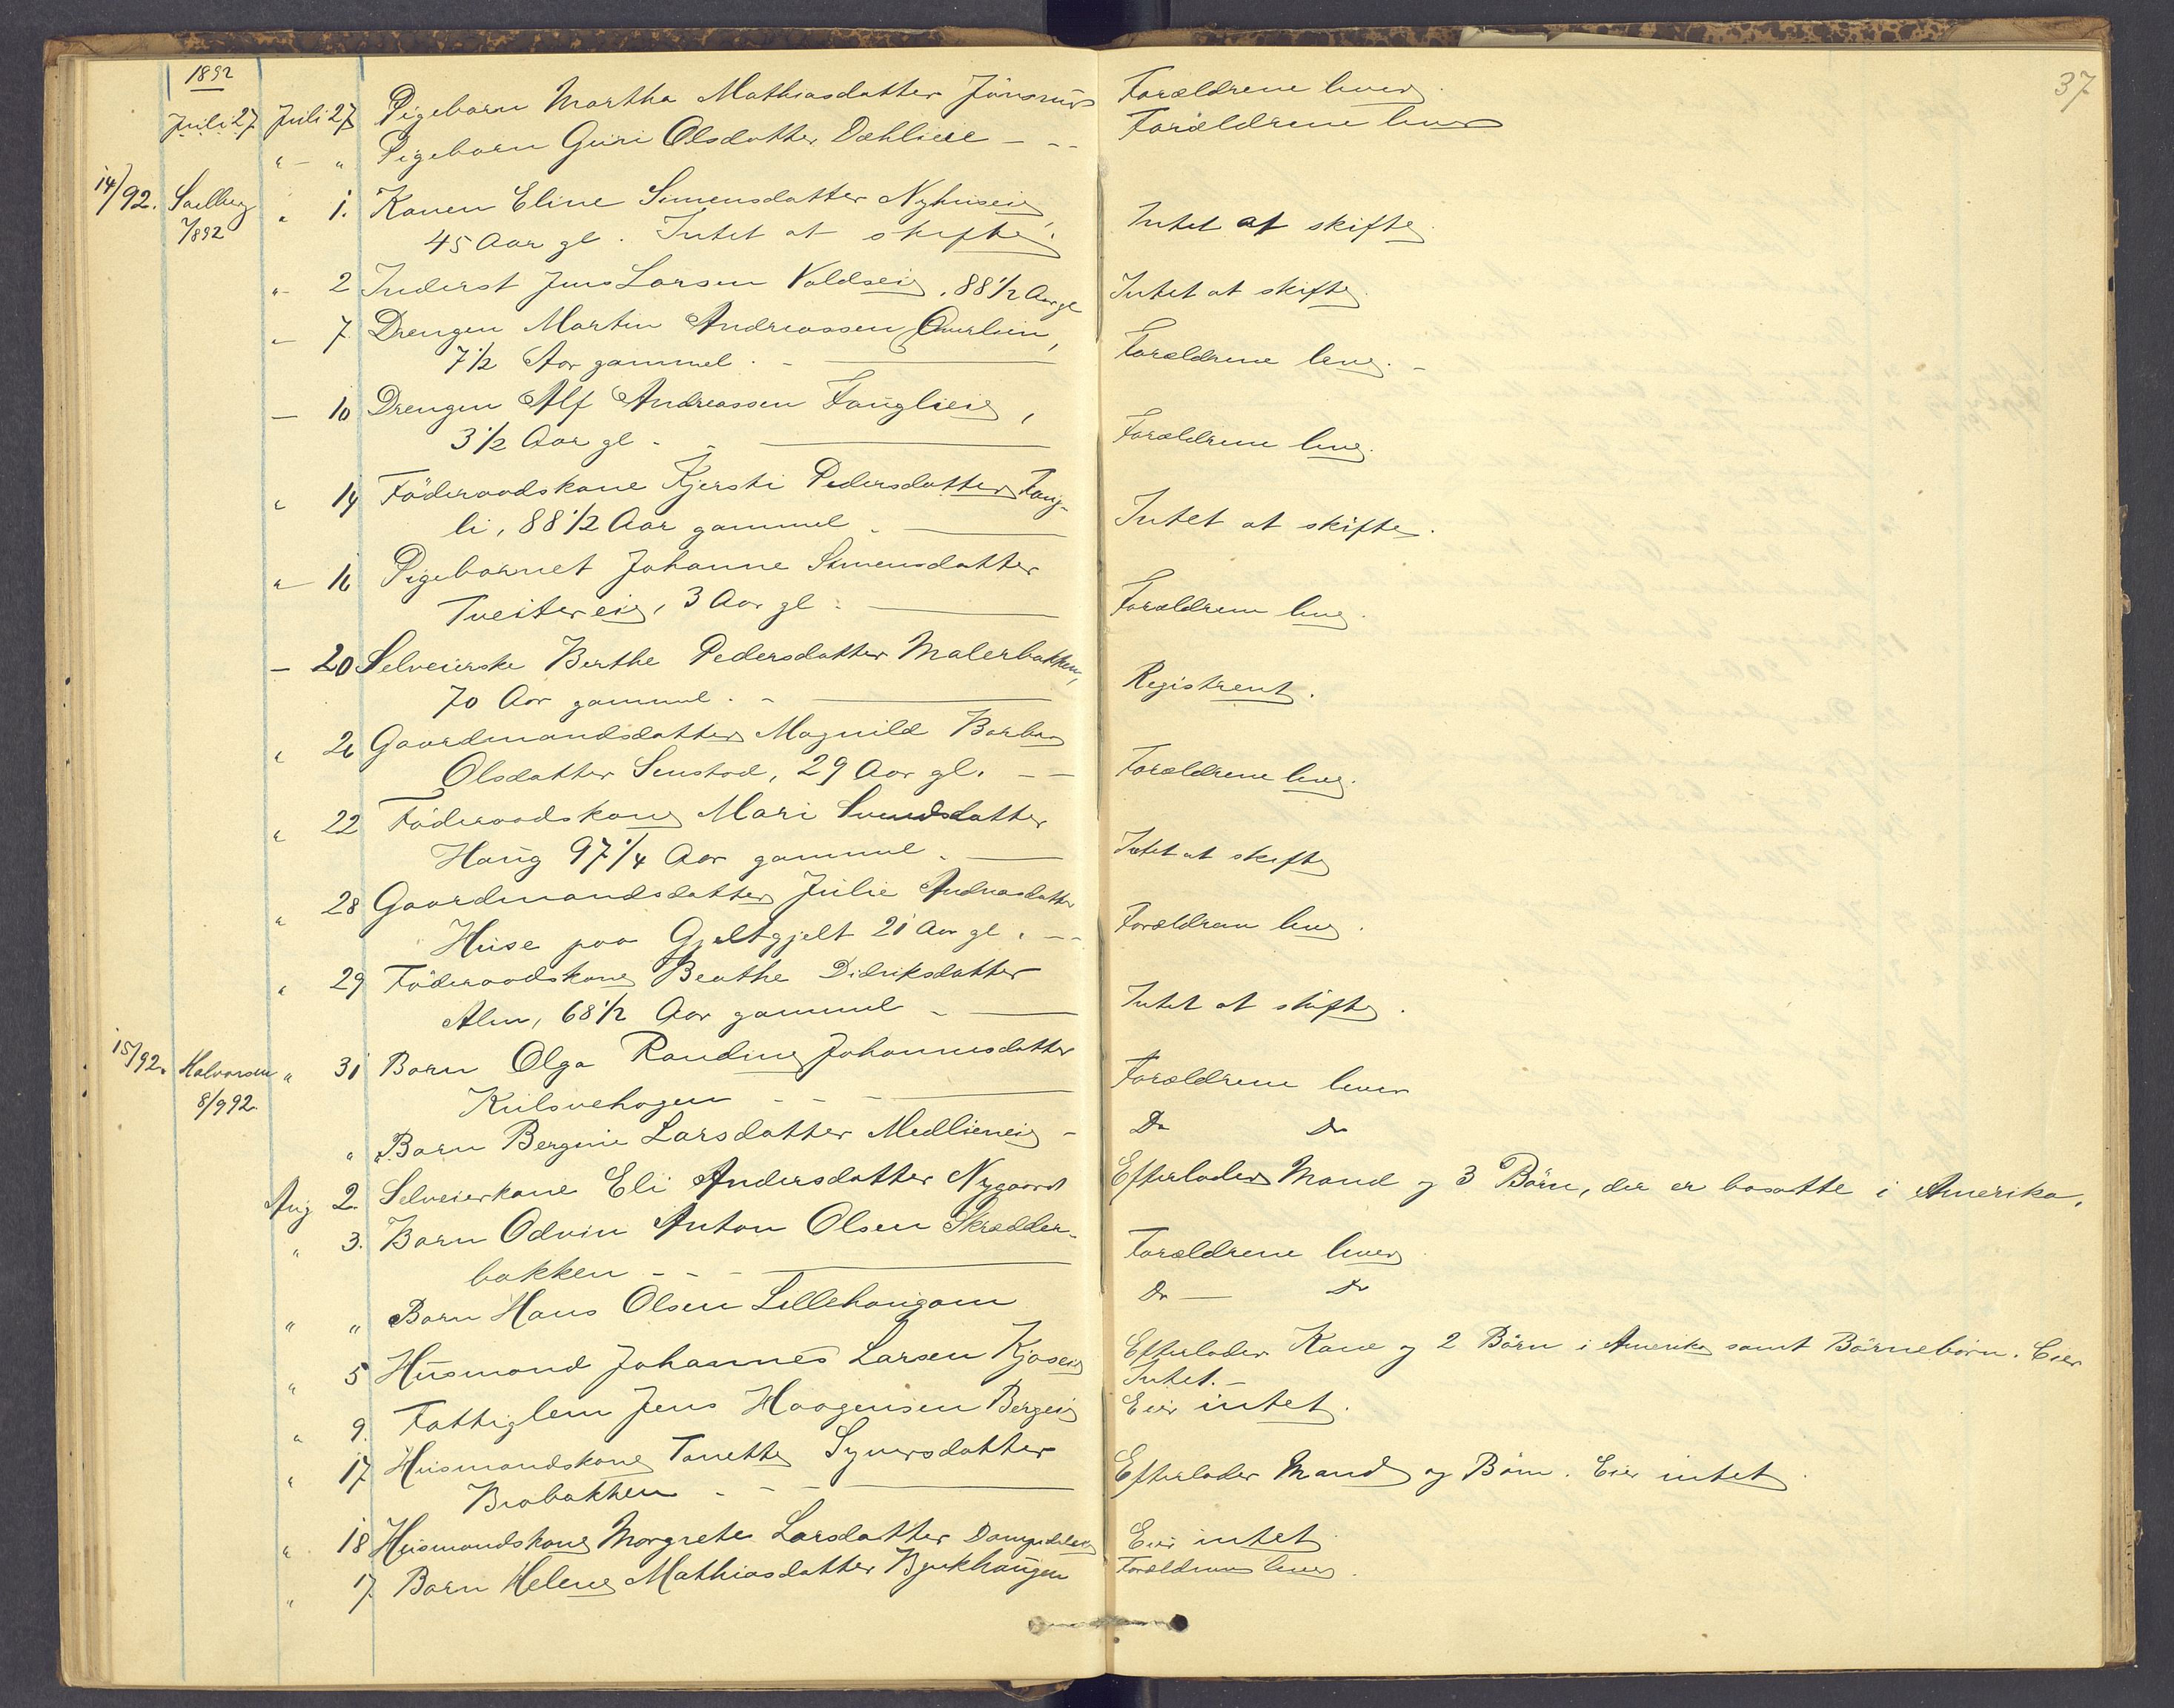 37
1892
Juli 27 Juli 27 Pigebarn Martha Mathiasdatter Forældrene lever
" - " Pigebarn Guri Olsdatter Dæhliere - - - Forældrene lever
14/92. Saelberg " 1. Konen Eline Simensdatter Nyhuseie,
7/892 45 Aar gl. Intet at skifte. Intet at skifte.
" - 2 Inderst Jens Larsen Voldseie, 88 1/2 Aar gl Intet at skifte.
" - 7 Drengen Martin Andreassen Øverlien,
7 1/2 Aar gammel. - Forældrene lever. -
— 10 Drengen Alf Andreassen Fauglieie,
3 1/2 Aar gl - - Forældrene lever.
" 14 Föderaadskone Kjersti Pedersdatter Faug-
li, 88 1/2 Aar gammel - Intet at skifte.
" - 16 Pigebarnet Johanne Simensdatter
Tveitereie, 3 Aar gl - Forældrene lever.
— 20 Selveierske Berthe Pedersdatter Malerbakken,
70 Aar gammel. - Registrert.
" 26 Gaardmandsdatter Magnild Barbra
Olsdatter Senstad, 29 Aar gl. - - Forældrene lever.
" 22 Föderaadskone Mari Svendsdatter
Haug 97 1/4 Aar gammel - Intet at skifte
" 28 Gaardmandsdatter Julie Andreasdatter
Huse paa Gjeltgjelt 21 Aar gl. - - Forældrene lever.
" 29 Föderaadskone Beathe Didriksdatter
Alm, 68 1/2 Aar gammel - Intet at skifte.
15/92. Halvorsen " 31 Barn Olga Randine Johannesdatter
8/9 92. Kulsvehagen - - - Forældrene lever
" " Barn Bergine Larsdatter Medlieneie - Do Do
Aug 2. Selveierkone Eli Andersdatter Nygaard Efterlader Mand og 3 Börn, der er bosatte i Amerika.
" 3. Barn Odvin Anton Olsen Skrædder-
bakken - - - Forældrene lever
" " Barn Hans Olsen Lillehaugam Do — Do
" 5 Husmand Johannes Larsen Kjoseie Efterlader Kone og 2 Börn i Amerika samt Börnebörn. Eier
Intet. -
" 9. Fattiglem Jens Haagensen Bergeie Eier intet.
" 17 Husmandskone Tonette Syversdatter
Brobakken - - - Efterlader Mand og Börn. Eier intet.
" 18 Husmandskone Margrete Larsdatter Eier intet
" 17. Barn Helene Mathiasdatter Bjerkhaugen Forældrene lever.